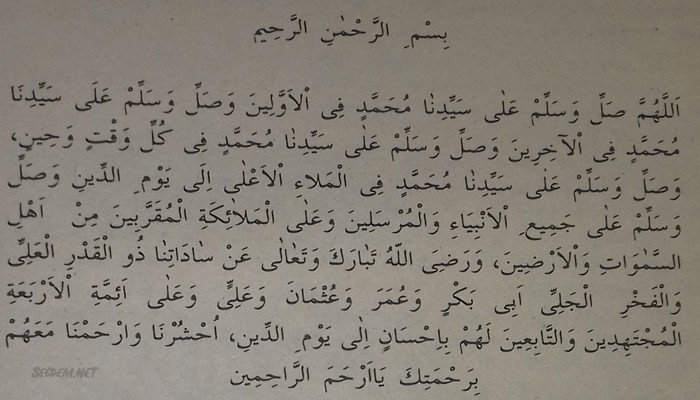 بِسْمِ الرَّحْمٰنِ الرَّحِيمِ
اَللّٰهُمَّ صَلِّ وَسَلِّمْ عَلٰى سَيِّدِنَا مُحَمَّدٍ فِى اْلاَوَّلِينَ وَصَلِّ وَسَلِّمْ عَلَى سَيِّدِنَا
مُحَمَّدٍ فِى اْلآخِرِينَ وَصَلِّ وَسَلِّمْ عَلٰى سَيِّدِنَا مُحَمَّدٍ فِى كُلِّ وَقْتٍ وَحِينٍ،
وَصَلِّ وَسَلِّمْ عَلٰى سَيِّدِنَا مُحَمَّدٍ فِى الْمَلَاءِ اْلاَعْلٰى اِلَى يَوْمِ الدِّينِ وَصَلِّ
وَسَلِّمْ عَلٰى جَمِيعِ اْلاَنْبِيَاءِ وَالْمُرْسَلِينَ وَعَلَى الْمَلاَئِكَةِ الْمُقَرَّبِينَ مِنْ اَهْلِ
السَّمٰوَاتِ وَاْلاَرْضِينَ، وَرَضِىَ اللّٰهُ تَبَارَكَ وَتَعَالٰى عَنْ سَادَاتِنَا ذُو الْقَدْرِ الْعَلِىِّ
وَالْفَخْرِ الْجَلِىِّ اَبِى بَكْرٍ وَعُمَرَ وَعُثْمَانَ وَعَلِىٍّ وَعَلٰى اَئِمَّةِ اْلاَرْبَعَةِ
الْمُجْتَهِدِينَ وَالتَّابِعِينَ لَهُمْ بِاِحْسَانٍ اِلٰى يَوْمِ الدِّينِ، اُحْشُرْنَا وَارْحَمْنَا مَعَهُمْ
بِرَحْمَتِكَ يَااَرْحَمَ الرَّاحِمِينَ
SECDEM.NET